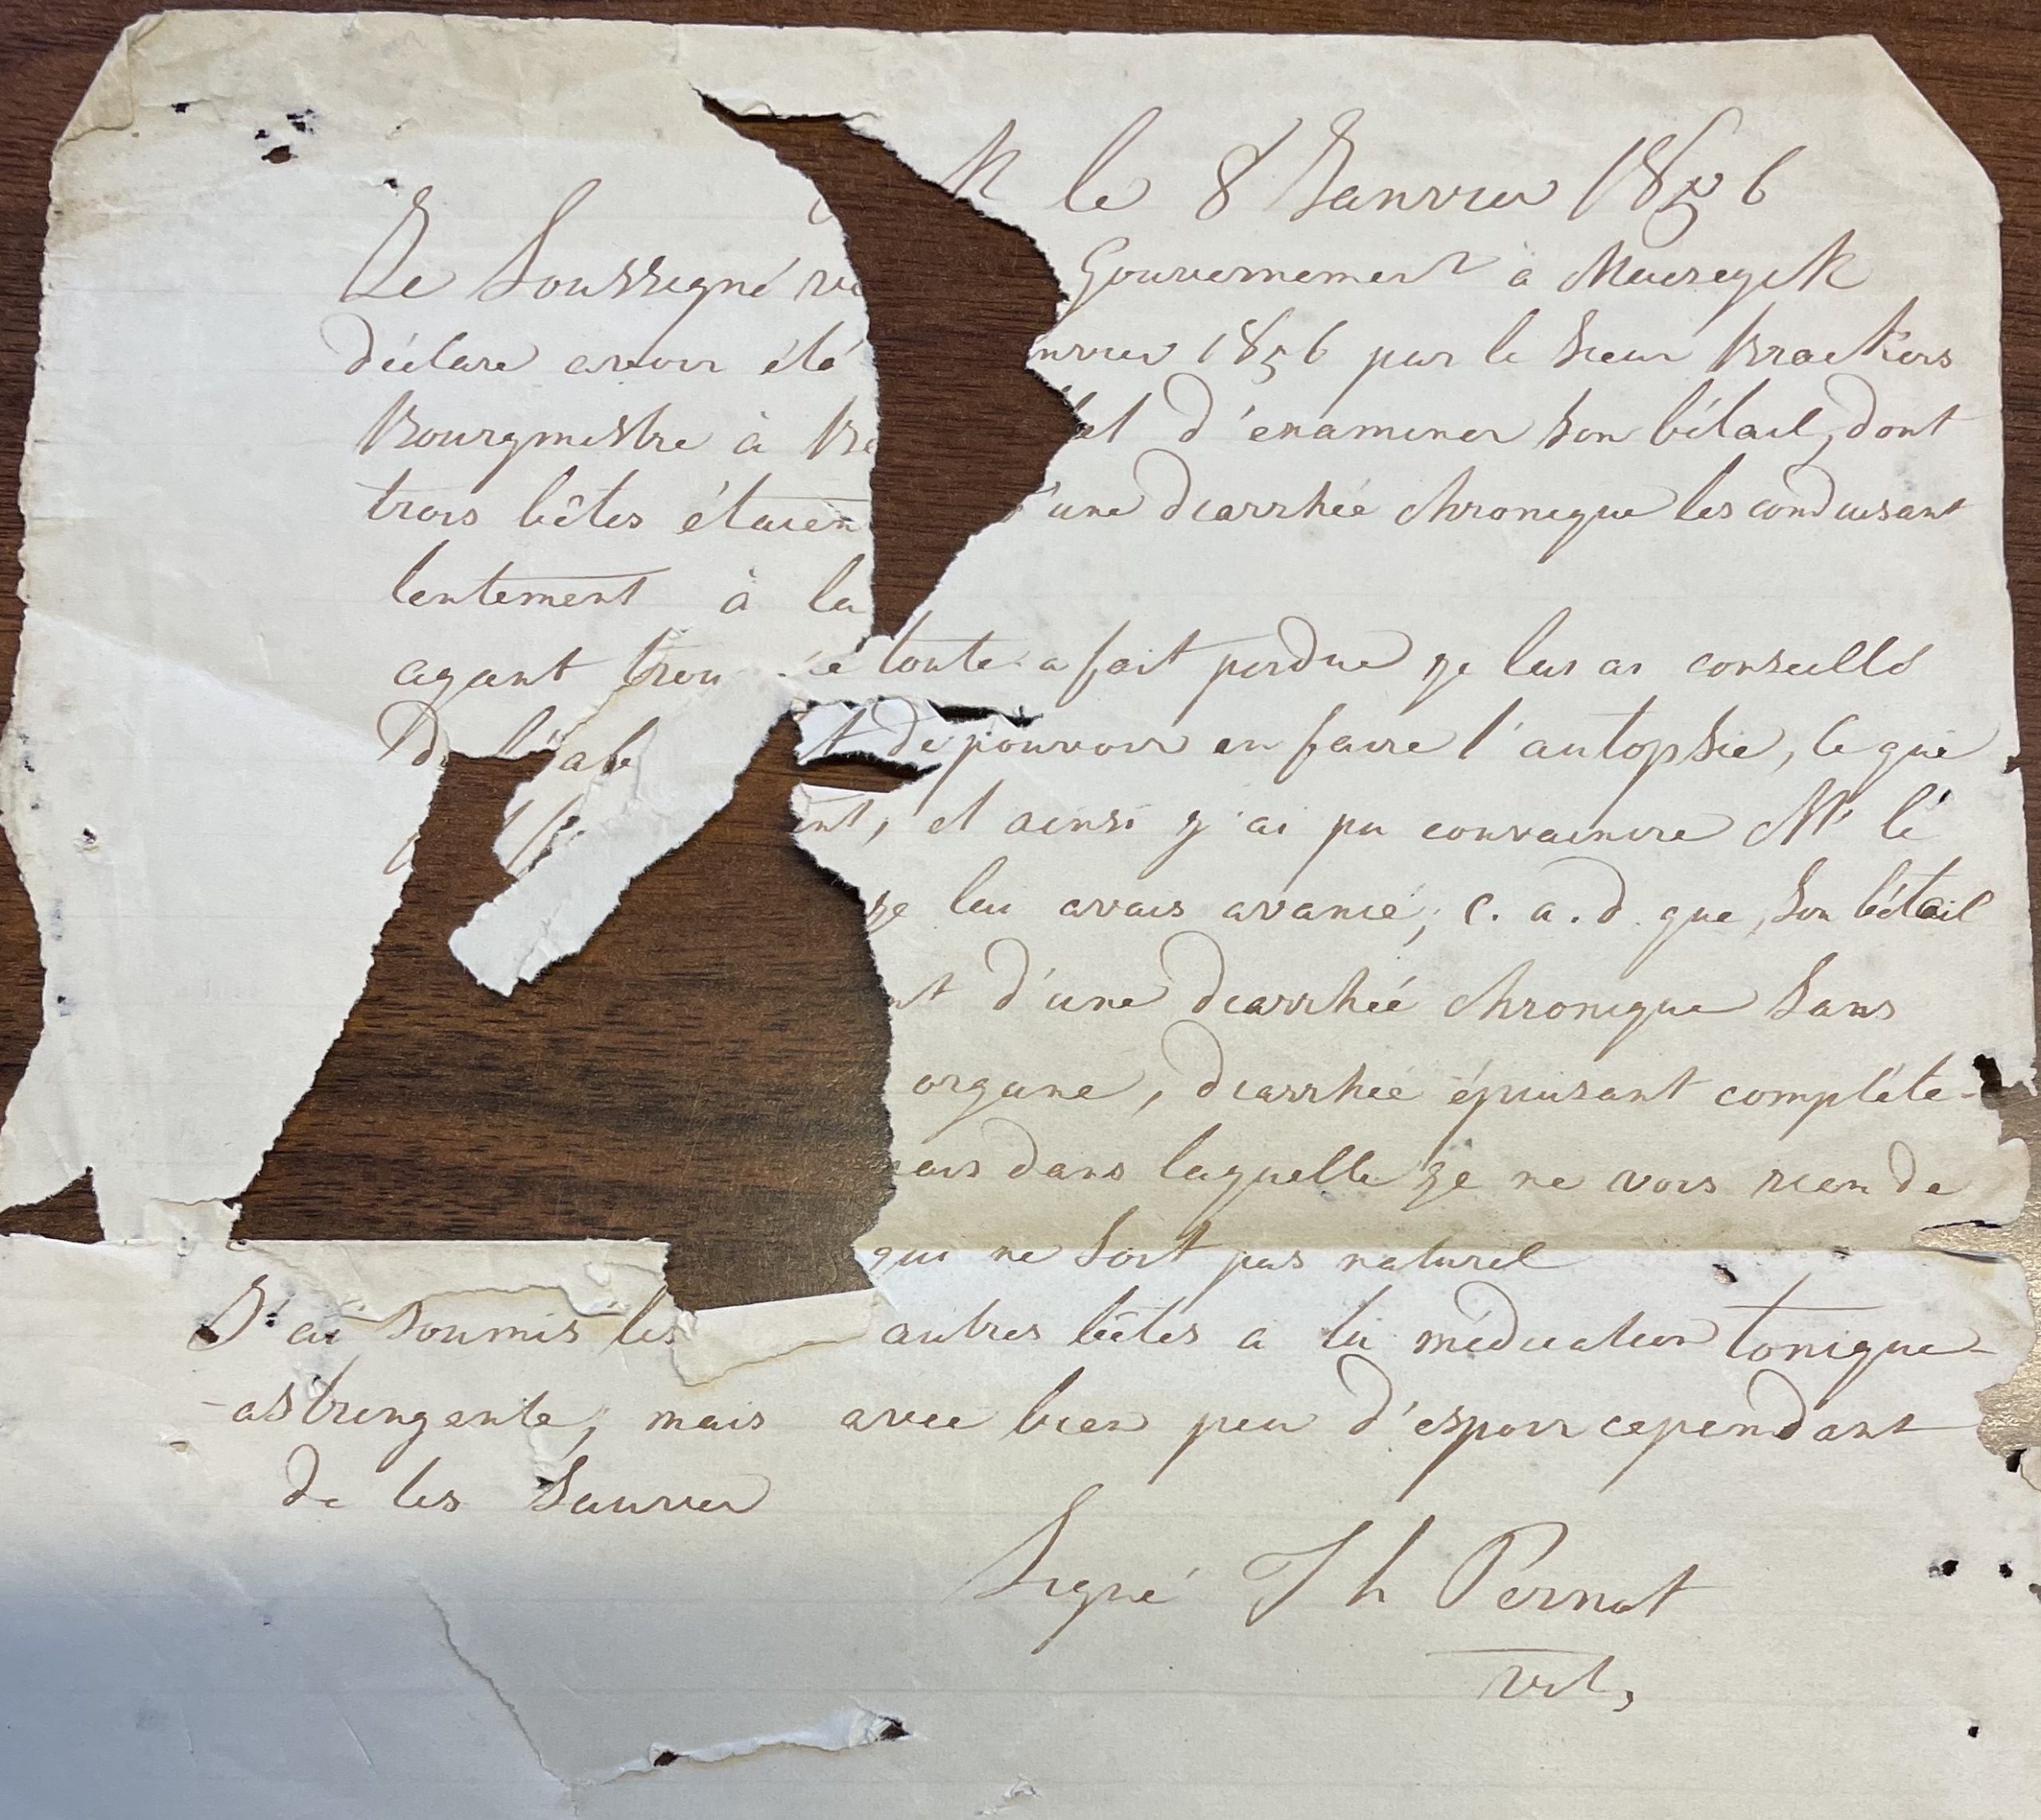 k le 8 Janvier 1856
Le Soussigné Gouvernement à Maeseyck
déclare avoir été nvier 1856 par le Sieur Brackers
Bourgmestre à et d'examiner son bétail, dont
trois bêtes étaien d'une diarrhée chronique les conduisant
lentement à la
ayant trou é toute a fait perdue je lui ai conseillé
de l'ab t de pouvoir en faire l'autopsie, ce que
ent, et ainsi j'ai pu convaincre Mr le
je lui avais avancé, c. a. d. que, son bétail
nt d'une diarrhée chronique sans
organe, diarrhée épuisant complète-
ais dans laquelle je ne vois rien de
qui ne soit pas naturel
J'ai soumis les autres bêtes a la médication tonique-
-astringente, mais avec bien peu d'espoir cependant
de les sauver
Signé Th Pernot
vét,